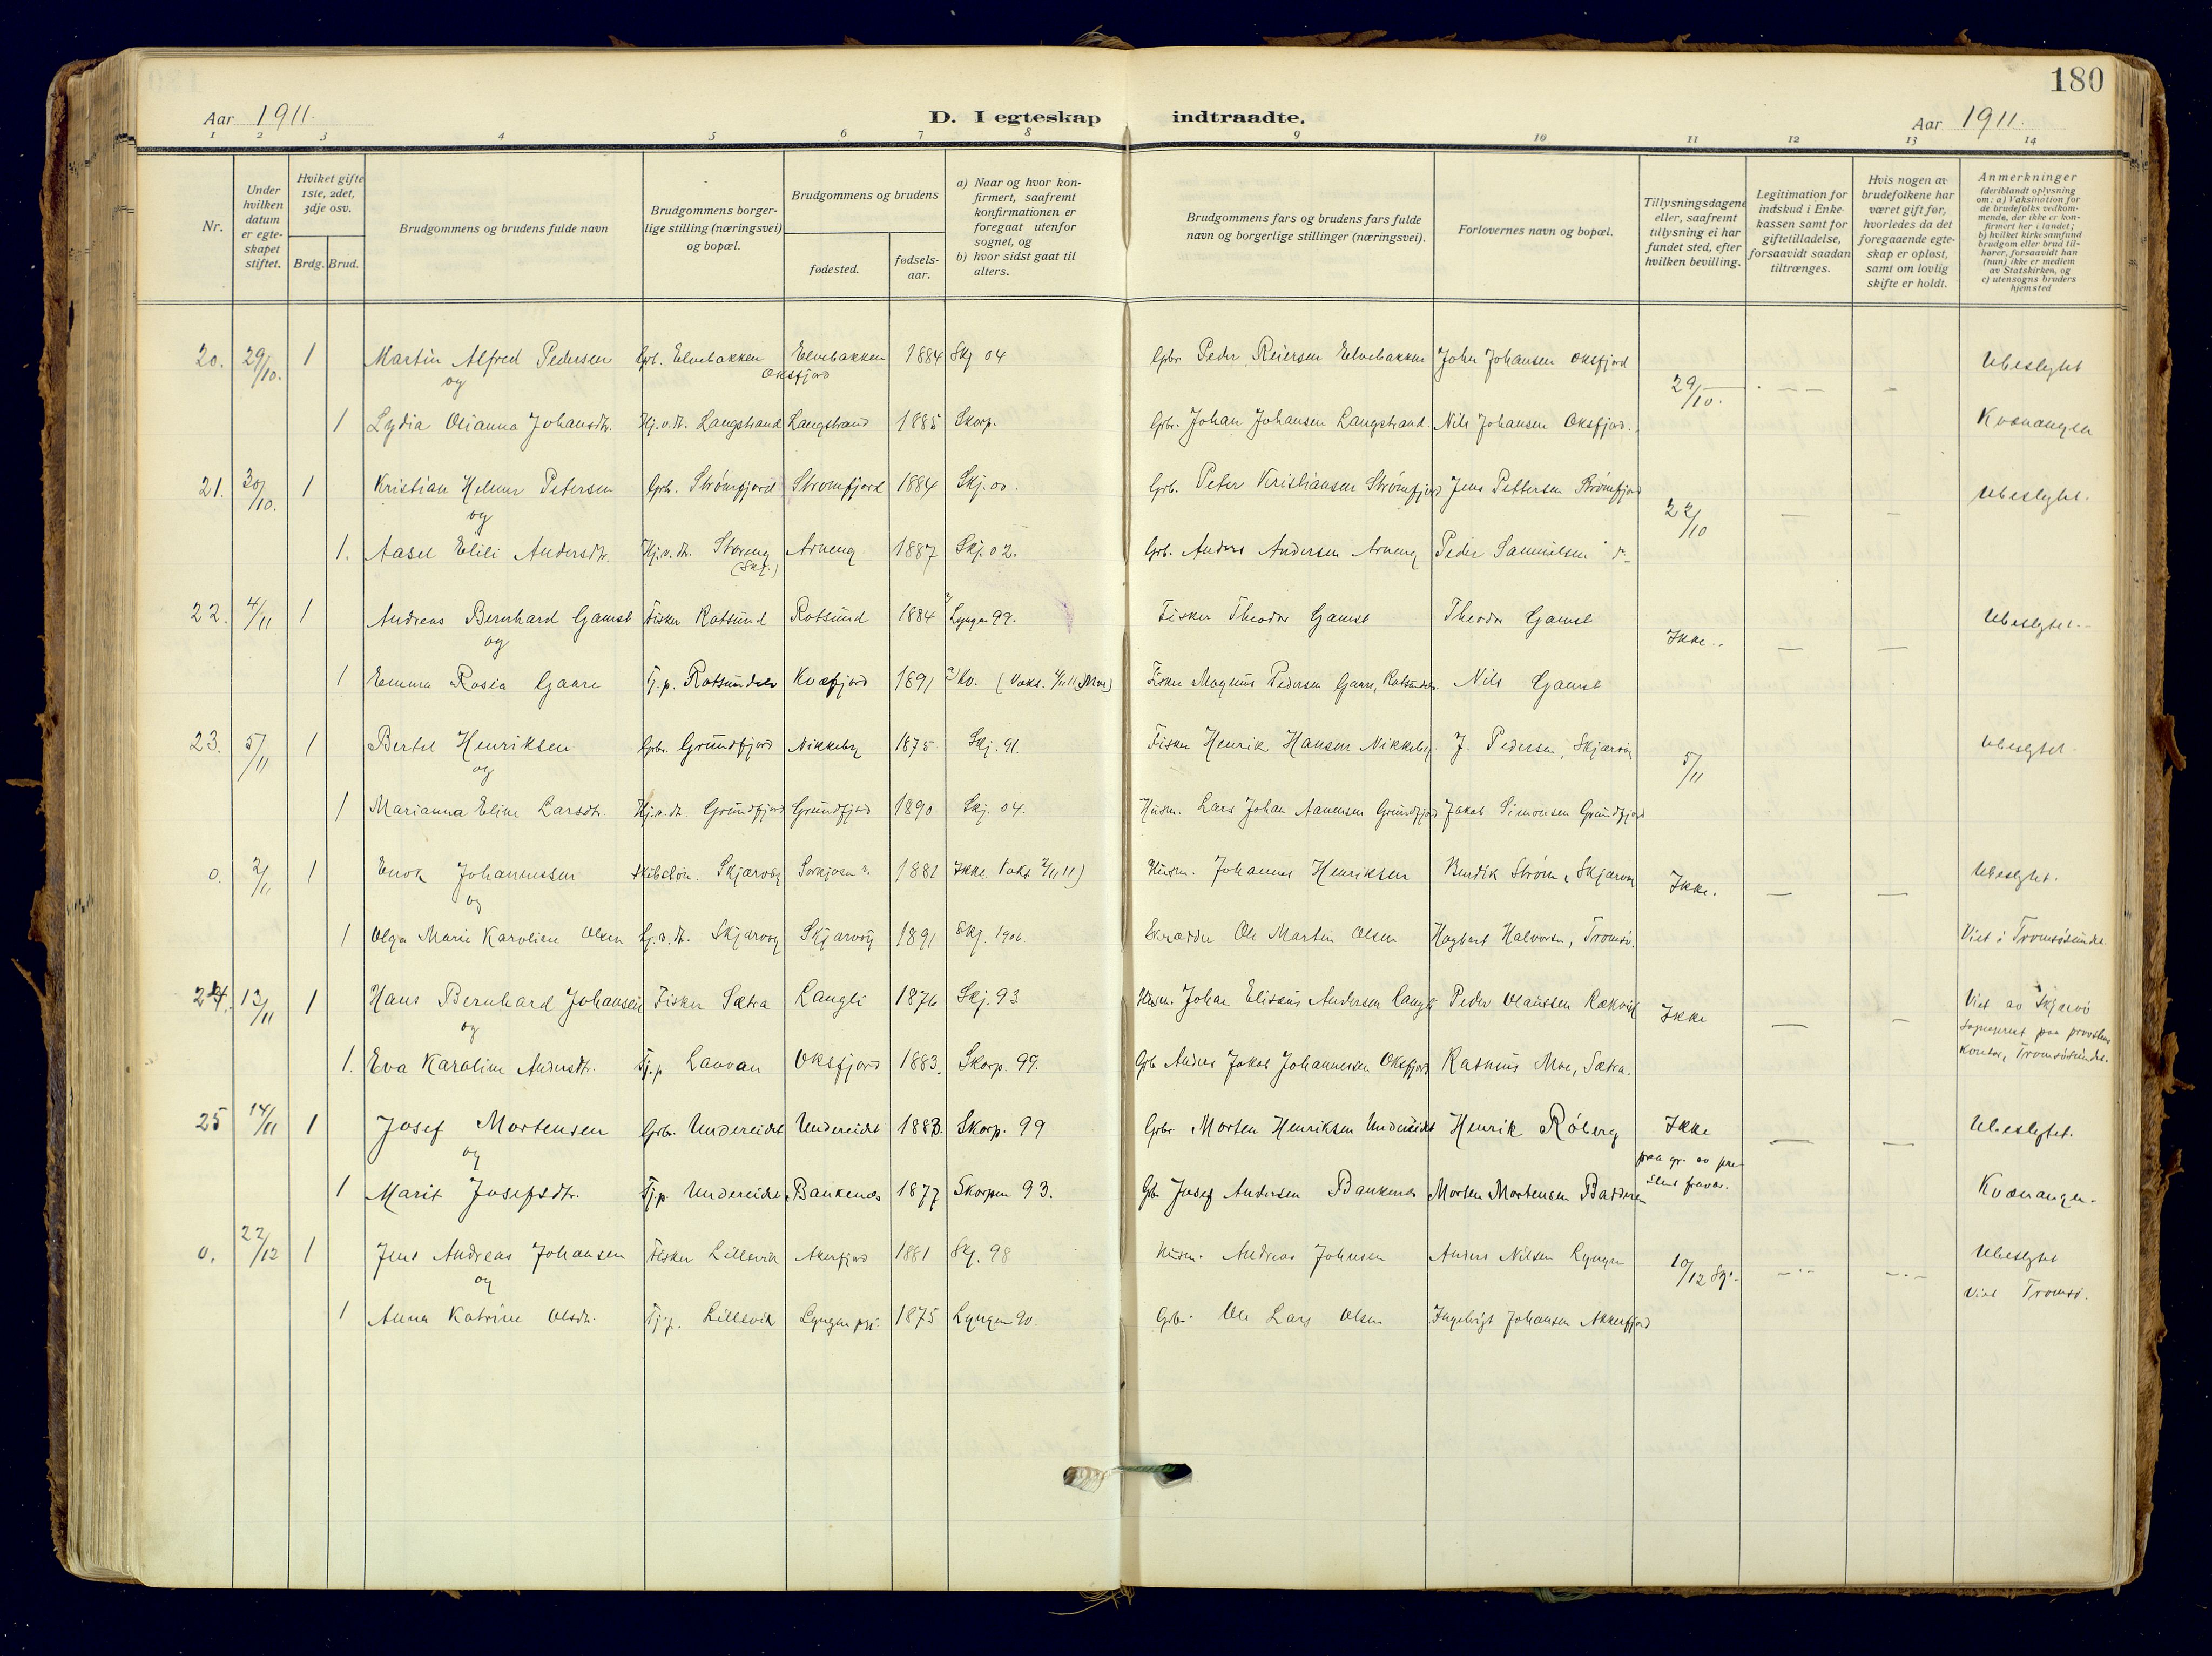 180
Aar 1911.
D. I egteskap indtraadte.
Aar 1911.
1 2 3 4 5 6 7 8 9 10 11 12 13 14
Nr.
Under hvilken datum er egteskapet stiftet.
Hvilket gifte 1ste, 2det, 3dje osv.
Brdg. Brud.
Brudgommens og brudens fulde navn
Brudgommens borgerlige stilling (næringsvei) og bopæl.
Brudgommens og brudens
fødested.
fødselsaar.
a) Naar og hvor konfirmert, saafremt konfirmationen er foregaat utenfor sognet, og
b) hvor sidst gaat til alters.
Brudgommens fars og brudens fars fulde navn og borgerlige stillinger (næringsvei).
Forlovernes navn og bopæl.
Tillysningsdagene eller, saafremt tillysning ei har fundet sted, efter hvilken bevilling.
Legitimation for indskud i Enkekassen samt for giftetilladelse, forsaavidt saadan tiltrænges.
Hvis nogen av brudefolkene har været gift før, hvorledes da det foregaaende egteskap er opløst, samt om lovlig skifte er holdt.
Anmerkninger (deriblandt oplysning om: a) Vaksination for de brudefolks vedkommende, der ikke er konfirmert her i landet; b) hvilket kirkesamfund brudgom eller brud tilhører, forsaavidt han (hun) ikke er medlem av Statskirken, og c) utensogns bruders hjemsted
20. 29/10. 1 Martin Alfred Pedersen Grb. Elvebakken Elvebakken 1884 Skj 04 Grbr. Peder Reiersen Elvebakken Johan Johansen Oksfjord Ubeslegtet
og Oksfjord 29/10. — —
1 Lydia Olianna Johansdtr. Hj.v.dt. Langstrand Langstrand 1885 Skorp. Grbr. Johan Johansen Langstrand. Nils Johansen Oksfjord. Kvænangen
21. 30/10. 1 Kristian Helmer Petersen Grb. Strømfjord Strømfjord 1884 Skj. 00. Grb. Peter Kristiansen Strømfjord Jens Pettersen Strømfjord Ubeslegtet.
og 22/10 — —
1. Aasel Elili Andersdtr. Hj.v.dt. Storeng (Skj.) Arneng 1887 Skj. 02. Grb. Anders Andersen Arneng Peder Samuelsen do
22. 4/11 1 Andreas Bernhard Gamst Fisker Rotsund Rotsund 1884 a) Lyngen 99. Fisker Theodor Gamst Theodor Gamst Ubeslegtet.
og Ikke. — —
1 Emma Rosia Gaare Tj.p. Rotsundelv Kvæfjord 1891 a) Kv. (Vaks. 4/11 11 Moe) Fisker Magnus Pedersen Gaare, Rotsundelv. Nils Gamst
23. 5/11 1 Bertel Henriksen Grbr. Grundfjord Nikkeby 1875 Skj. 91. Fisker Henrik Hansen Nikkeby J. Pedersen, Skjærvöy Ubeslegtet
og 5/11
1 Marianna Eline Larsdtr. Hj.v.dt. Grundfjord Grundfjord 1890 Skj. 04. Husm. Lars Johan Aamensen Grundfjord Jakob Simonsen Grundfjord
0. 2/11 1 Enok Johannessen Skibstøm. Skjærvöy Sørkjosen 1882 Ikke Vaks. 2/11 11) Husm. Johannes Henriksen Bendik Strøm, Skjærvöy Ubeslegtet.
og Ikke. — —
1 Olga Marie Karoline Olsen Hj.v.dt. Skjærvöy Skjærvöy 1891 Skj. 1906 Skrædder Ole Martin Olsen Hagbart Halvorsen, Tromsö. Viet i Tromsösundet
24. 13/11 1 Hans Bernhard Johansen Fisker Sætra Langli 1876 Skj. 93 Husm. Johan Elisæus Andersen Langli Peder Olaussen Rækvik Viet av Skjærvö sogneprest paa provstens kontor, Tromsösundet.
og Ikke — —
1. Eva Karoline Andersdtr. Tj.p Lauvan Oksfjord 1883. Skorp. 99. Grb Anders Jakob Johannessen Oksfjord Rasmus Moe, Sætra.
25 14/11 1 Josef Mortensen Grbr. Undereidet Undereidet 1883. Skorp. 99 Grbr. Morten Henriksen Undereidet Henrik Røberg Ikke Ubeslegtet.
og paa gr. av prestens fravær. — —
1 Marit Josefsdtr. Tj.p. Undereidet Bankenæs 1877 Skorpen 93. Gb. Josef Andersen Bankenæs Morten Mortensen Badderen Kvænangen.
0. 22/12 1 Jens Andreas Johansen Fisker Lillevik Akerfjord 1881 Skj. 98 Husm. Andreas Johnsen Anders Nilsen Lyngen Ubeslegtet
og 10/12 Skj. — — Viet Tromsö.
1 Anna Katrine Olsdtr. Tj.p. Lillevik Lyngen pgj. 1875 Lyngen 90. Grbr. Ole Lars Olsen Ingebrigt Johansen Akkerfjord